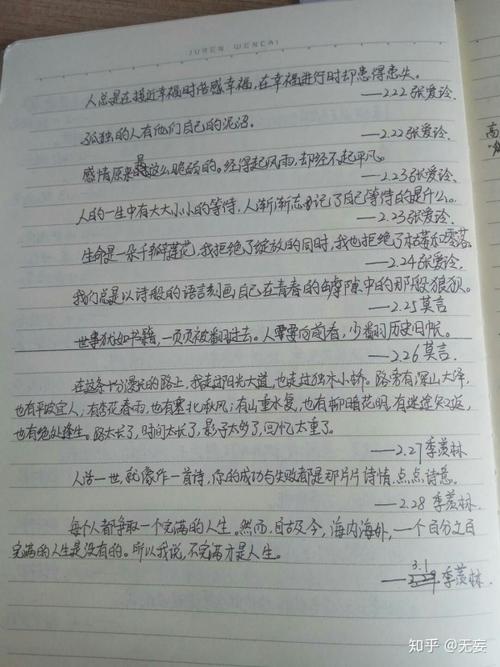 JUREN WENCAI
人总是在接近幸福时倍感幸福，在幸福进行时却患得患失。
——2.22张爱玲.
孤独的人有他们自己的泥沼。
——2.22张爱玲.
感情原来是这么脆弱的。经得起风雨，却经不起平凡。
——2.23张爱玲.
人的一生中有大大小小的等待，人渐渐忘记了自己等待的是什么。
——2.23张爱玲.
生命是一朵千瓣莲花，我拒绝了绽放的同时，我也拒绝了枯萎和零落.
——2.24张爱玲.
我们总是以诗般的语言刻画自己在青春的罅隙中的那段狼狈.
——2.25莫言
世事犹如书籍，一页页被翻过去。人要向前看，少翻历史旧帐。
——2.26莫言.
在这条十分漫长的路上，我走过阳光大道，也走过独木小桥。路旁有深山大泽，
也有平坡宜人；有杏花春雨，也有塞北秋风；有山重水复，也有柳暗花明；有迷途知返，
也有绝处逢生。路太长了，时间太长了，影子太多了，回忆太重了。
——2.27季羡林
人活一世，就像作一首诗，你的成功与失败都是那片片诗情，点点诗意.
——2.28季羡林.
每个人都争取一个完满的人生。然而，自古及今，海内海外，一个百分之百
完满的人生是没有的。所以我说，不完满才是人生。
——3.1季羡林.
高
知乎 @无妄